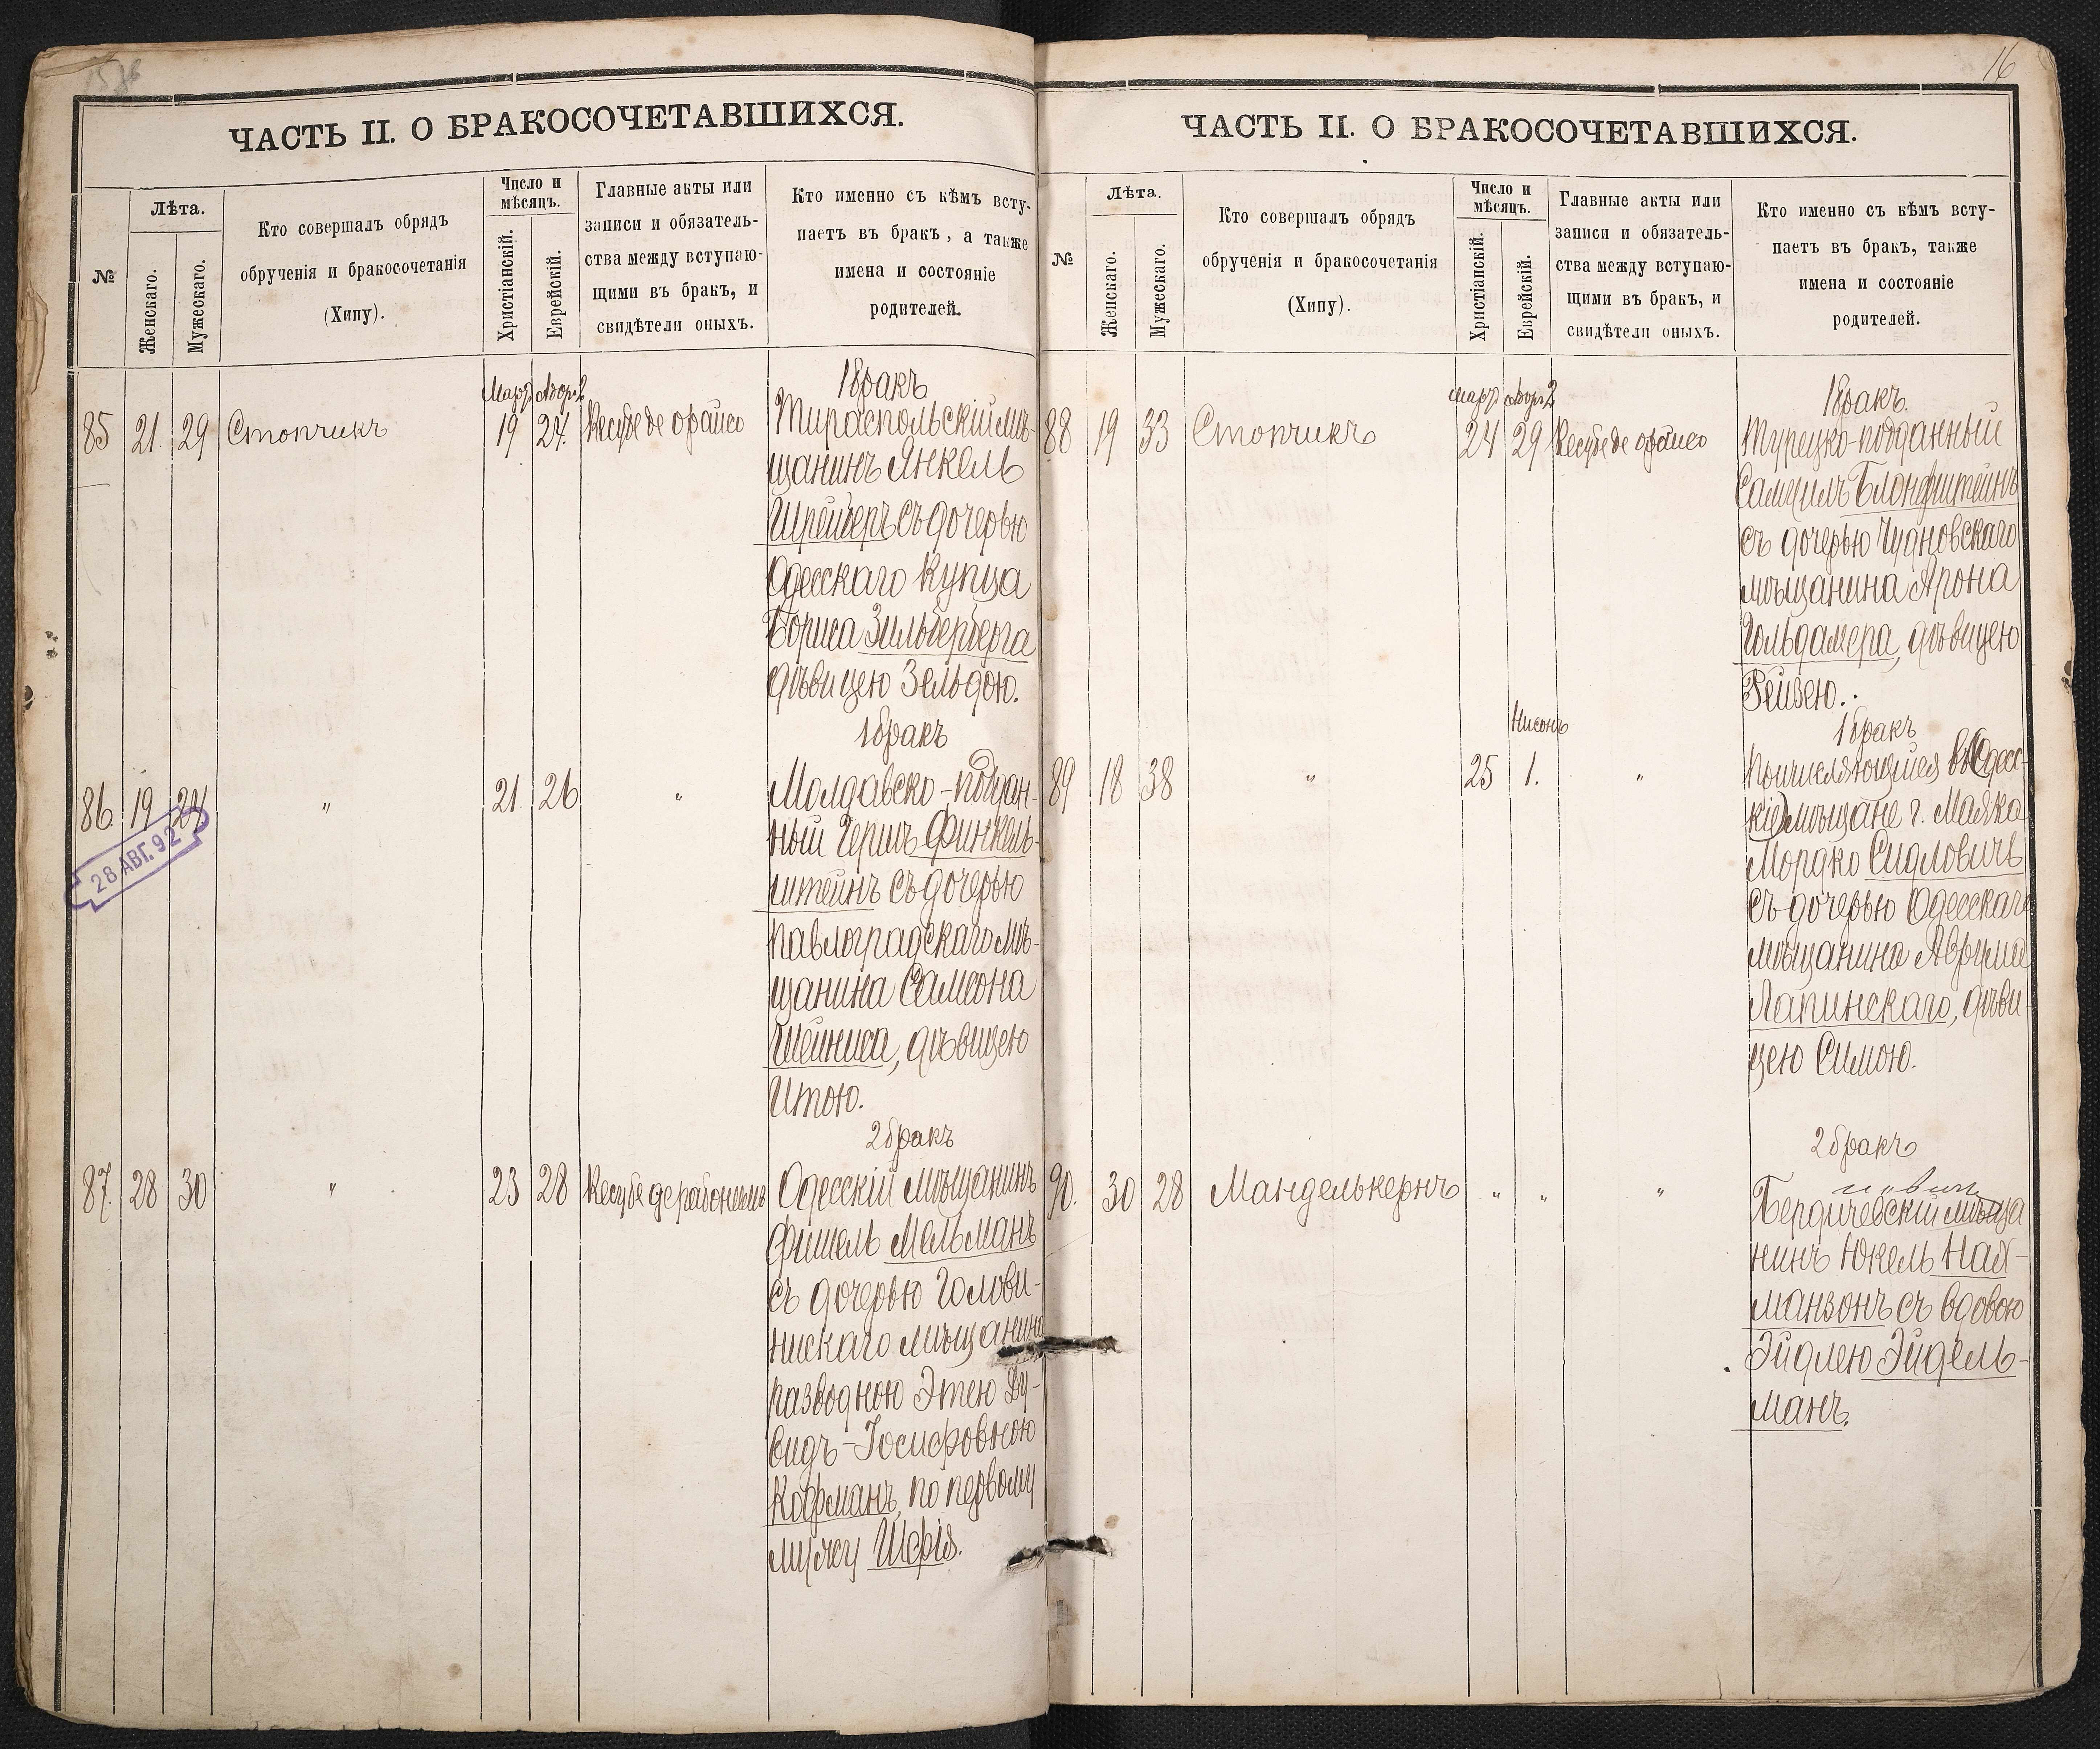 ЧАСТЬ II. О БРАКОСОЧЕТАВШИХСЯ.
№
Лѣта.
Женскаго.
Мужескаго.
Кто совершалъ обрядъ
обрученія и бракосочетанія
(Хипу).
Число и
мѣсяцъ.
Христіанскій.
Еврейскій.
Главные акты или
записи и обязатель-
ства между вступаю-
щими въ бракъ, и
свидѣтели оныхъ.
Кто именно съ кѣмъ всту-
паетъ въ бракъ, а также
имена и состояніе
родителей.
Мартъ Адоръ 2
1 бракъ
85 21. 29 Стопчикъ 19 27. Кесубе де орайсо Тираспольскій мѣ-
щанинъ Янкель
Шрейберъ съ дочерью
Одесскаго купца
Бориса Зильберберга
дѣвицею Зельдою.
1 бракъ
86. 19 24 " 21. 26 " Молдавско-поддан-
ный Гершъ Финкель-
штейнъ съ дочерью
Павлоградскаго мѣ-
щанина Самсона
Шейниса, дѣвицею
Итою.
28 АВГ. 92
2 бракъ
87. 28 30 " 23 28 Кесубе де рабонемъ Одесскій мѣщанинъ
Фишель Мельманъ
съ дочерью Голови-
нискаго мѣщанина
разводною Этею Ду-
видъ-Іосифовною
Кофманъ, по первому
мужу
16
ЧАСТЬ II. О БРАКОСОЧЕТАВШИХСЯ.
№
Лѣта.
Женскаго.
Мужескаго.
Кто совершалъ обрядъ
обрученія и бракосочетанія
(Хипу).
Число и
мѣсяцъ.
Христіанскій.
Еврейскій.
Главные акты или
записи и обязатель-
ства между вступаю-
щими въ бракъ, и
свидѣтели оныхъ.
Кто именно съ кѣмъ всту-
паетъ въ бракъ, также
имена и состояніе
родителей.
Мартъ Адоръ 2
1 бракъ.
88 19 33 Стопчикъ 24 29 Кесубе де орайсо Турецко-подданный
Самуилъ Блонфштейнъ
съ дочерью Чудновскаго
мѣщанина Арона
Гольдамера, дѣвицею
Рейзею.
Нисонъ
1 бракъ
89 18 38 " 25 1. " Причисляющійся въ Одесс-
кіе мѣщане г. Маяка
Мордко Сидловичъ
съ дочерью Одесскаго
мѣщанина Аврума
Лапинскаго, дѣви-
цею Симою.
2 бракъ
90. 30 28 Манделькернъ " " " Бердичевскій мѣща
нинъ Юкель Нах-
манзонъ съ вдовою
Эйдлею Эйдель-
манъ.